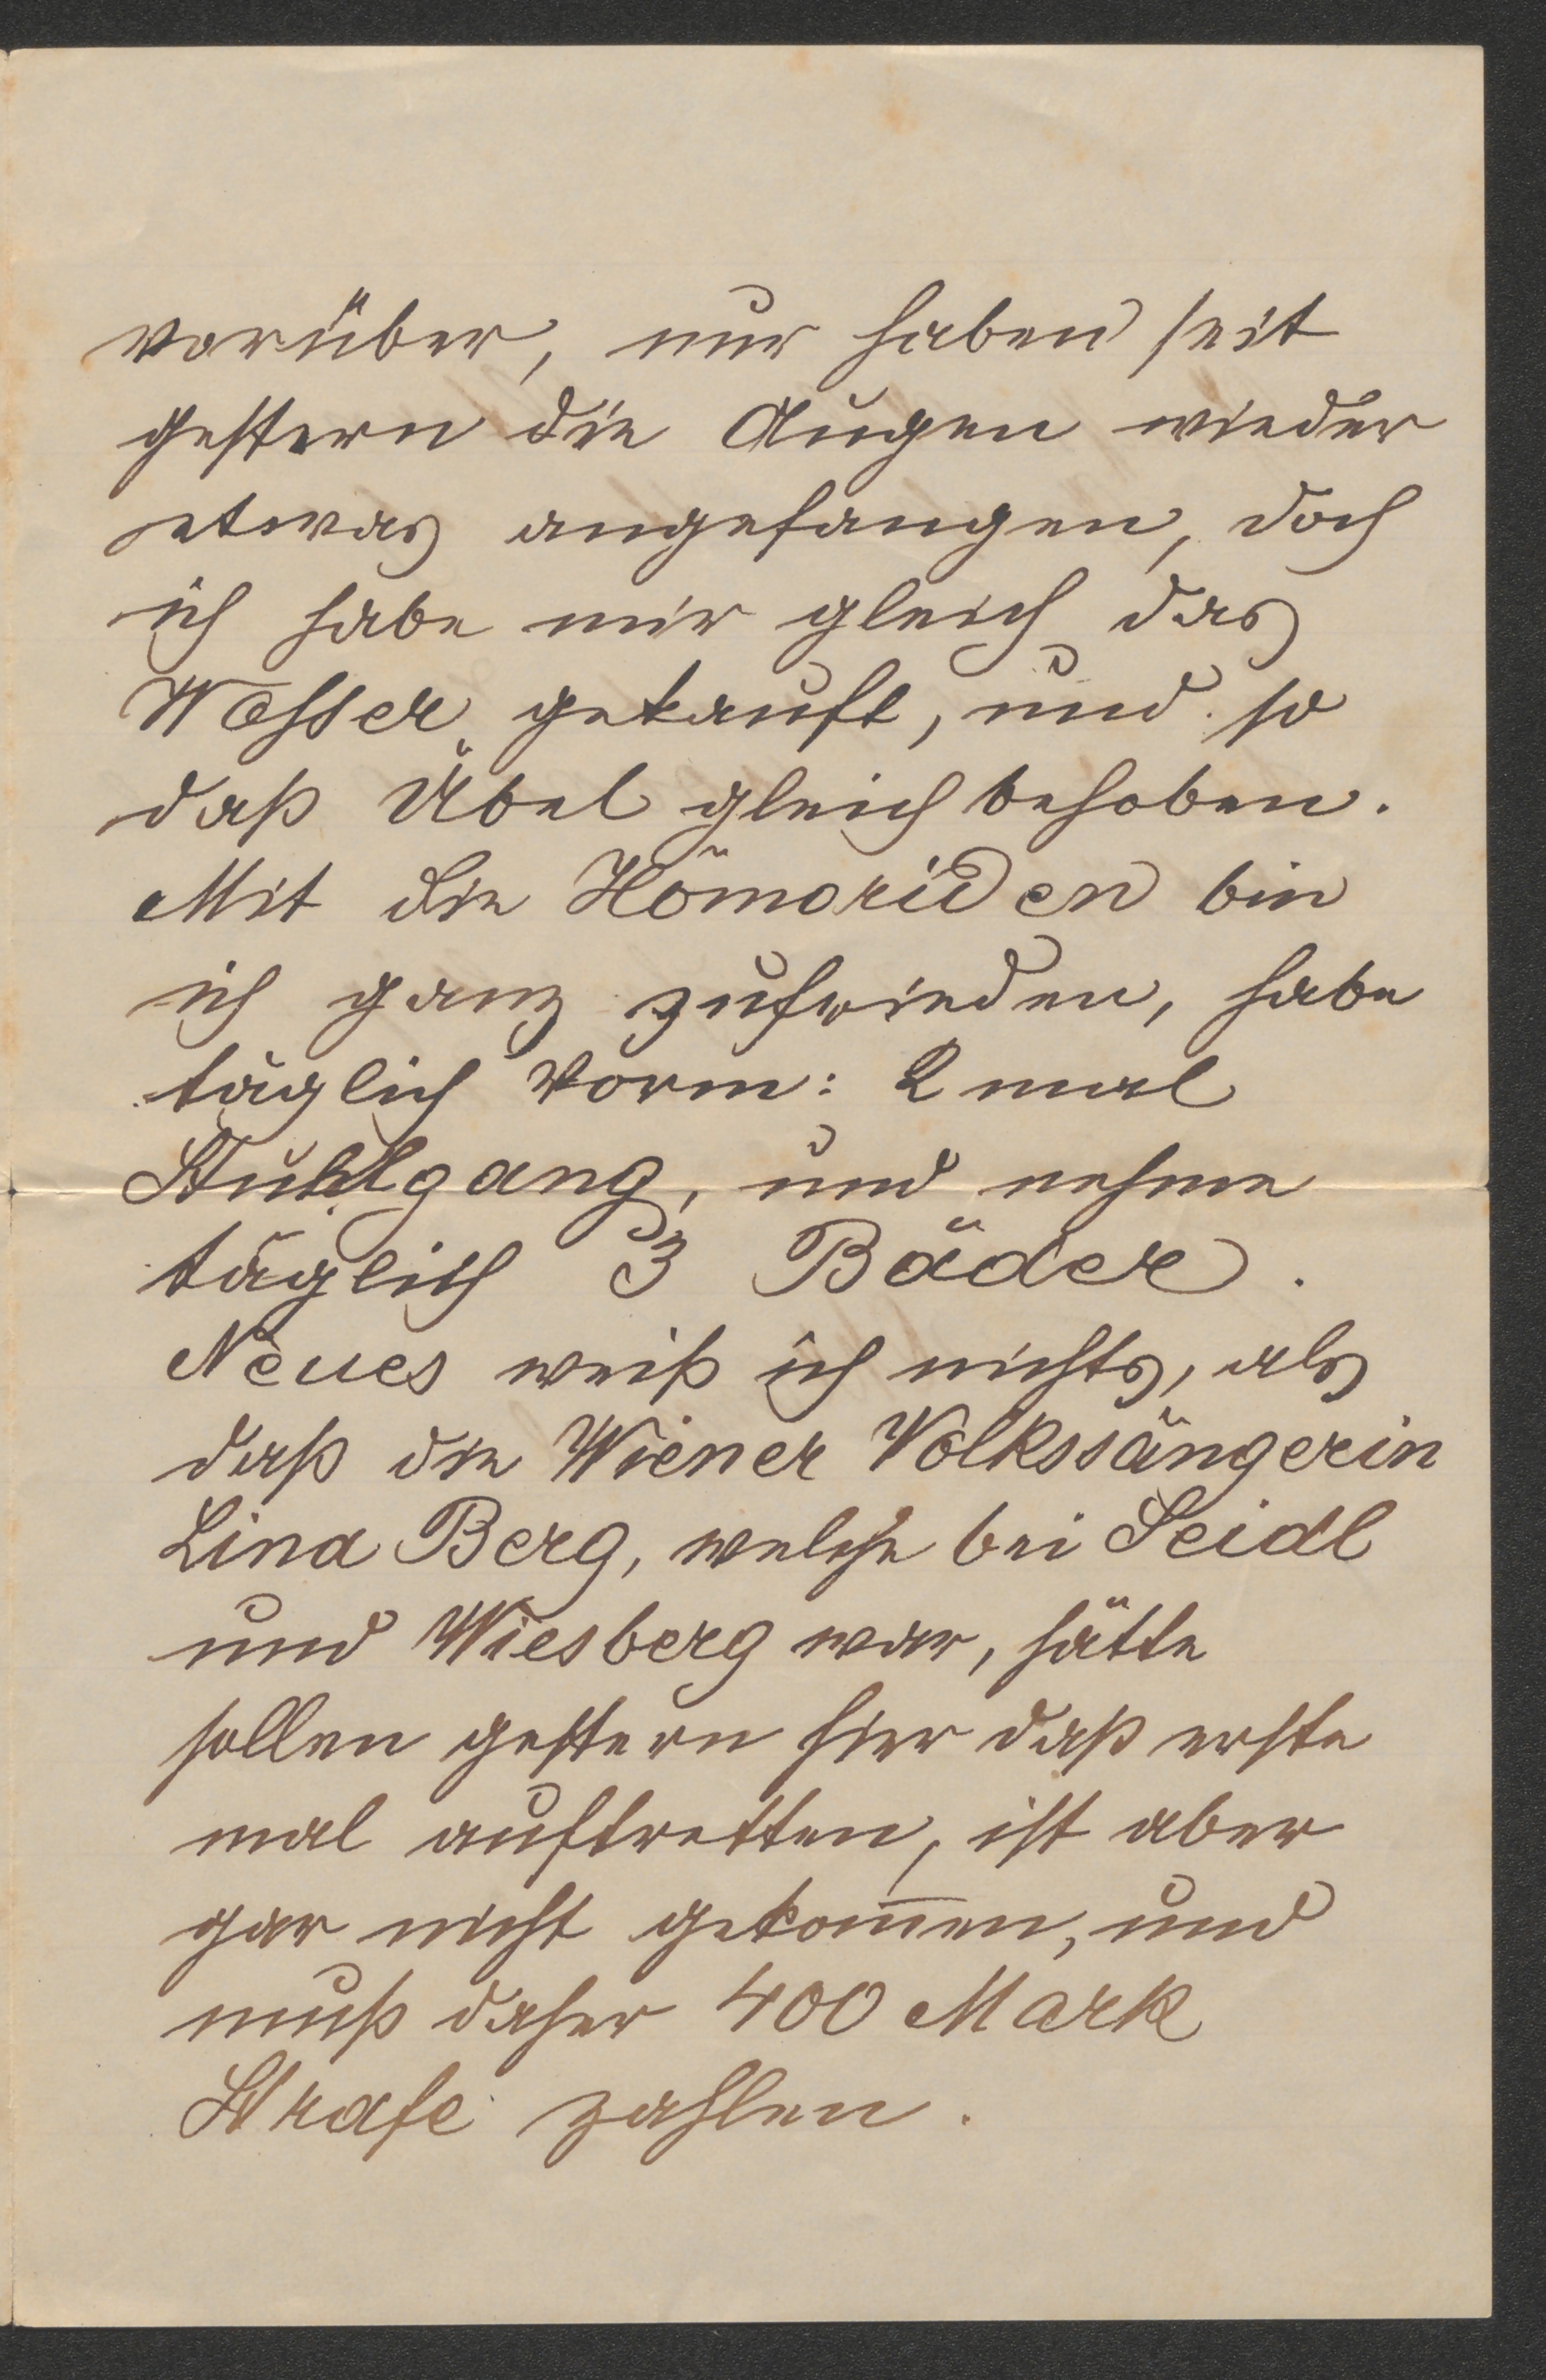 vorüber, nur haben seit
gestern die Augen wieder
etwas angefangen, doch
ich habe mir gleich das
Wasser gekauft, und so
daß Übel gleich behoben.
Mit die Hömoriden bin
ich ganz zufrieden, habe
täglich Vorm: 2 mal
Stuhlgang, und nehme
täglich 3 Bäder.
Neues weiß ich nichts, als
daß die Wiener Volkssängerin
Lina Berg, welche bei Seidl
und Wiesberg war, hätte
sollen gestern hier daß erste
mal auftretten, ist aber
gar nicht gekom̅en, und
muß daher 400 Mark
Strafe zahlen.